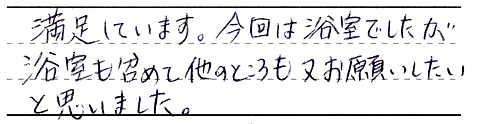 満足しています。今回は浴室でしたが
浴室も含めて他のところも又お願いしたい
と思いました。